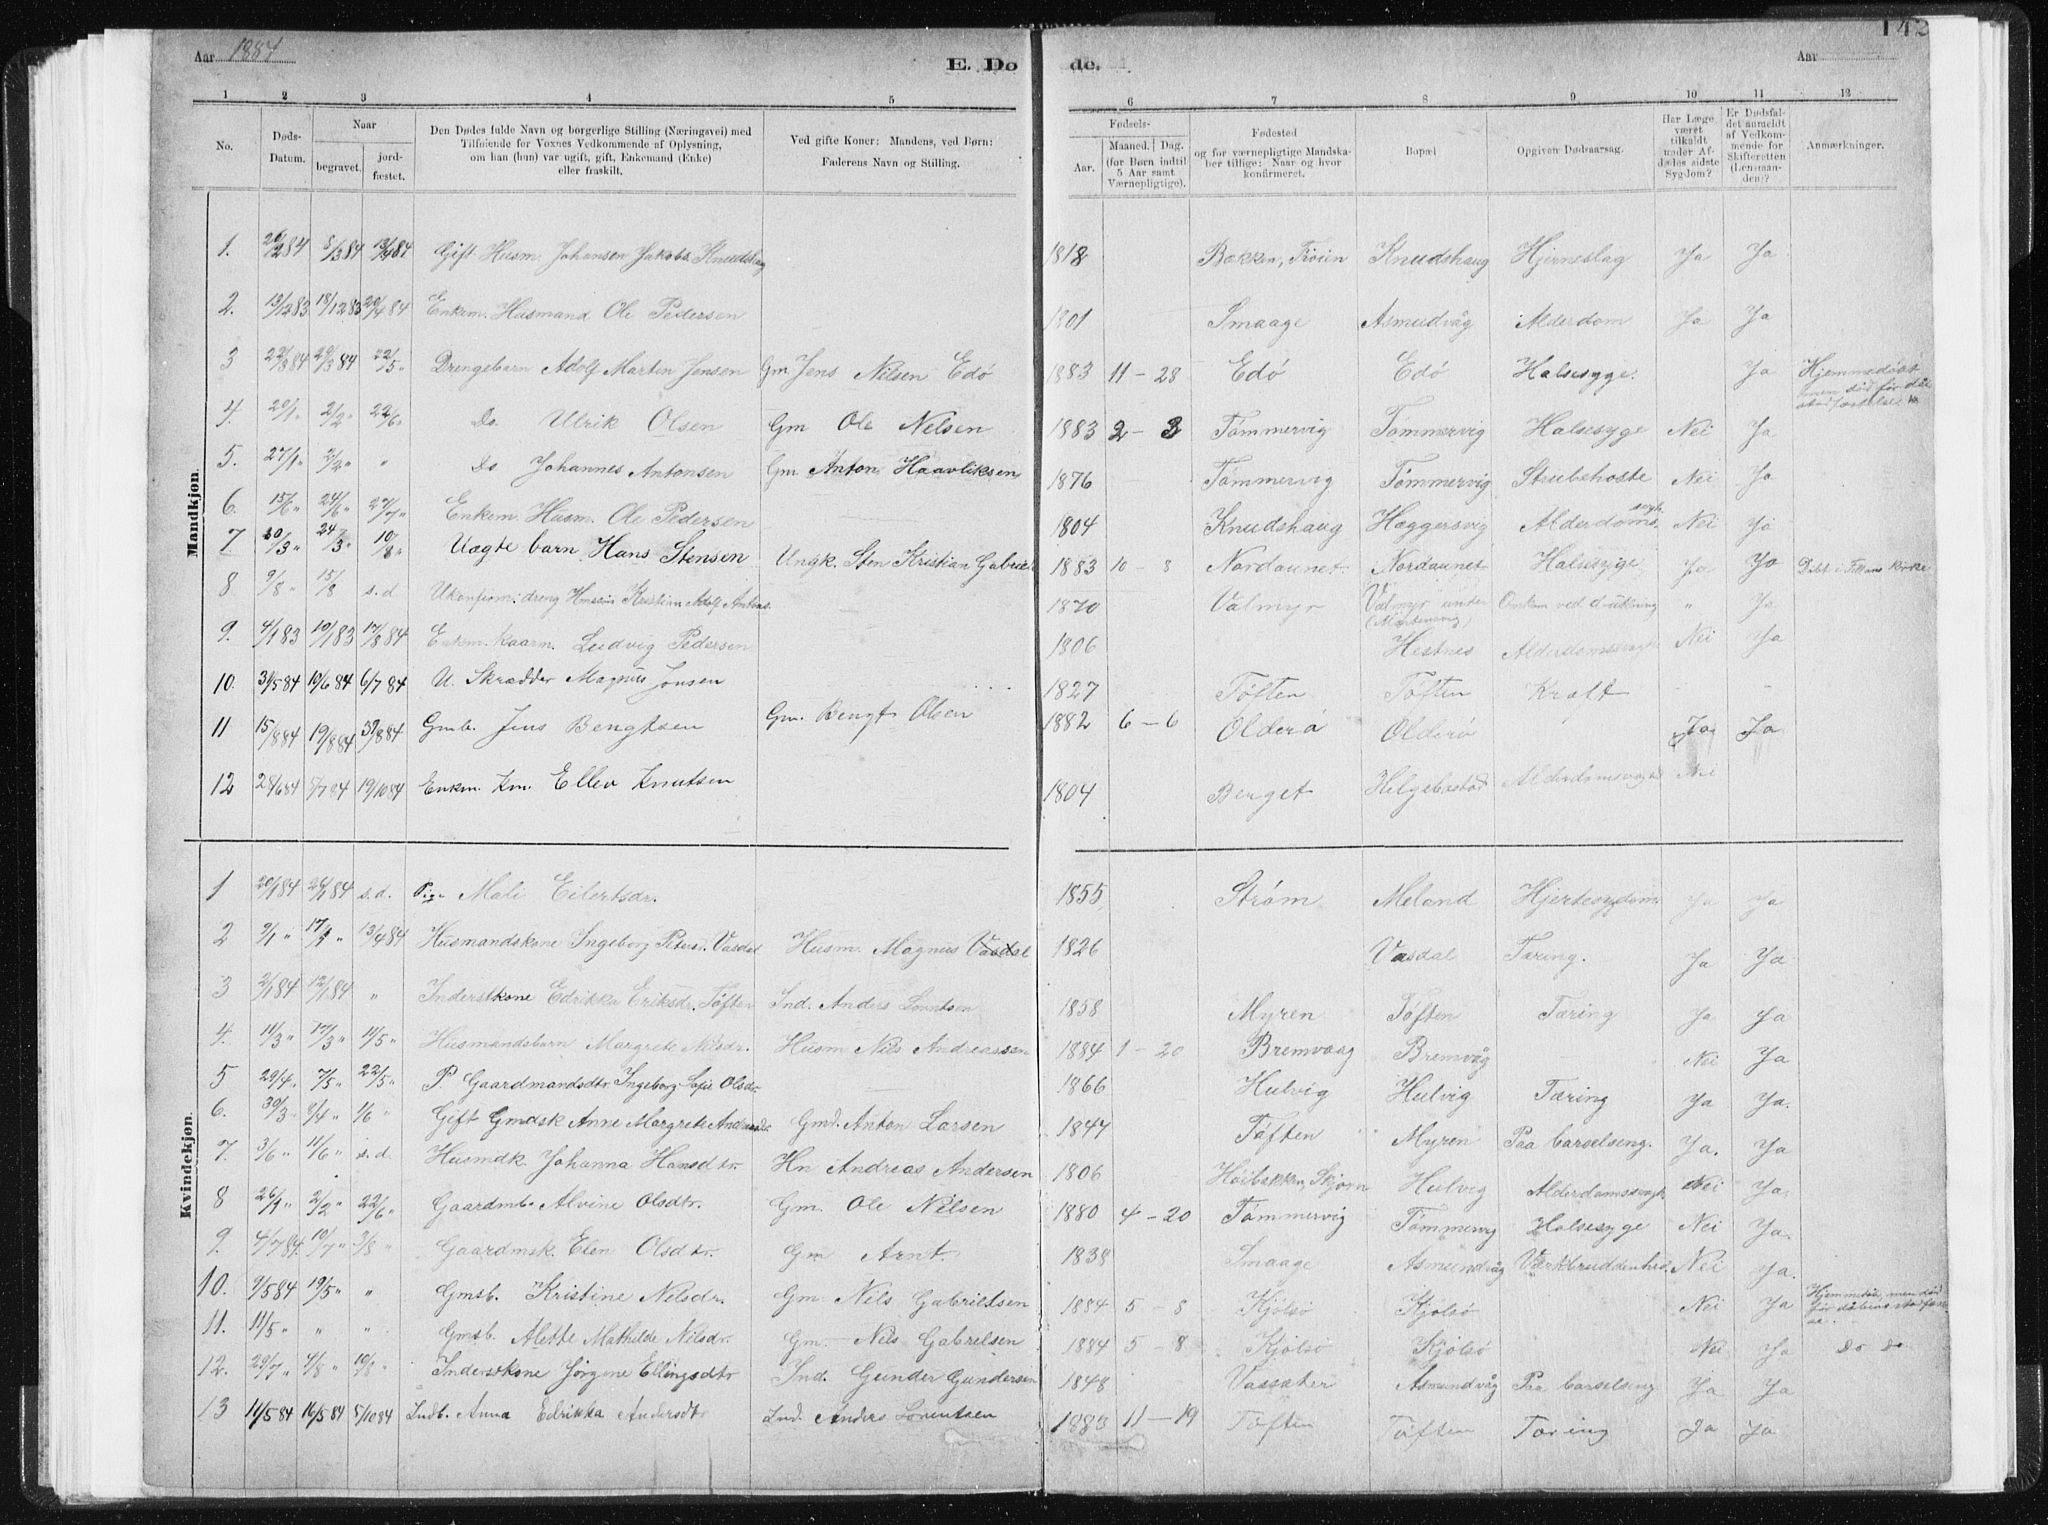 142
Aar 1884 E. Dö de. Aar
1 2 3 4 5 6 7 8 9 10 11 12
No. Døds-Datum. Naar begravet. jord-fæstet. Den Dødes fulde Navn og borgerlige Stilling (Næringsvei) med Tilføiende for Voxnes Vedkommende af Oplysning, om han (hun) var ugift, gift, Enkemand (Enke) eller fraskilt. Ved gifte Koner: Mandens, ved Børn: Faderens Navn og Stilling. Fødsels- Aar. Maaned. Dag. (for Børn indtil 5 Aar samt Værnepligtige). Fødested og for værnepligtige Mandskaber tillige: Naar og hvor konfirmeret. Bopæl Opgiven Dødsaarsag. Har Læge været tilkaldt under Afdødes sidste Sygdom? Er Dødsfaldet anmeldt af Vedkommende for Skifteretten (Lensmanden)? Anmærkninger.
Mandkjøn.
1. 26/2 84 8/3 84 13/4 84 Gift Husm. Johansen Jakobs. Knudshaug 1818 Bakken, Frøien Knudshaug Hjerneslag Ja Ja
2. 13/12 83 18/12 83 20/4 84 Enkem. Husmand Ole Pedersen 1801 Smaage Asmudvåg Alderdom Ja Ja
3 22/3 84 29/3 84 22/5 Drengebarn Adolf Martin Jensen Gm Jens Nilsen Edö 1883 11 - 28 Edö Edö Halsesyge. Ja Hjemmedöbt men död før
4. 20/1 " 2/2 " 22/6 Do Ulrik Olsen Gm Ole Nelsen 1883 2 - 3 Tömmervig Tömmervig Halsesyge Nei Ja
5. 27/1 " 2/2 " " Do Johannes Antonsen Gm Anton Haavliksen 1876 Tömmervig Tömmervig Strubehoste Nei Ja
6. 15/6 " 24/6 " 27/7 " Enkem. Husm. Ole Pedersen 1804 Knudshaug Hæggersvig Alderdoms Nei Ja
7 20/3 " 24/3 " 10/8 " Uægte barn Hans Stensen Ungk. Sten Kristian Gabriel 1883 10 - 8 Nordaunet Nordaunet Halsesyge Ja Ja Döbt i Fillans Kirke
8 9/8 " 15/8 s.d Ukonfirm. dreng Kristian Adolf Antons. 1870 Valmyr Valmyr under Omkom ved drukning " Ja
9. 4/1 83 10/1 83 17/8 84 Enkem. kaarm. Ludvig Pedersen 1806 Hestnes Nei Ja
10. 31/5 84 10/6 84 6/7 84 U. Skrædder Magnus Jonsen 1827 Töften Töften Kræft - -
11 15/8 84 19/8 84 31/8 84 Gmb. Jens Bengtsen Gm. Bengt Olsen 1882 6 - 6 Olderö Olderö Ja Ja
12 28/6 84 5/7 84 19/10 84 Enkm. Km. Ellev Knutsen 1804 Berget Helgebostad Nei
Kvindekjøn.
1 20/1 84 26/1 84 s.d. Pige Mali Eilertsdr. 1855 Ström Meland Hjertesygdom Ja Ja
2 9/1 " 17/1 " 13/4 84 Husmandskone Ingeborg Petersd. Vasdal Husm. Magnus Vasdal 1826 Vasdal Tæring. Ja Ja
3 2/1 84 12/1 84 " Inderstkone Edrikka Eriksdr. Töften Ind. Anders Lorntsen 1858 Myren Töften Tæring Ja Ja
4. 11/3 " 17/3 " 11/5 " Husmandsbarn Margrete Nilsdr. Husm Nils Andreassen 1884 1 - 20 Bremvaag Bremvåg Nei Ja
5 29/4 " 7/5 " 22/5 " P Gaardmandsdtr Ingeborg Sofie Olsdr. 1866 Hulvig Hulvig Tæring Ja Ja.
6. 30/3 " 8/4 " 1/6 " Gift Gmdsk Anne Margrete Gmd. Anton Larsen 1847 Töften Myren Paa barselseng. Ja. Ja
7. 3/6 " 11/6 " s.d. Husmdk. Johanna Hansdtr. Hm Andreas Andersen 1806 Höibakken, Hulvig Nei Ja.
8 26/1 " 2/2 " 22/6 " Gaardmb. Alvine Olsdtr. Gm. Ole Nilsen 1880 4 - 20 Tömmervig Tömmervig Halsesyge Nei Ja.
9. 4/7 84. 10/7 " 3/8 " Gaardmsk. Elen Olsdtr. Gm Arnt 1838 Smaage Asmundvåg Nei Ja.
10. 9/5 84 19/5 " " Gmsb. Kristine Nilsdr. Gm. Nils Gabrilsen 1884 5 - 8 Kjölsö Kjölsö Nei Ja Hjemmedöbt, men död
11. 11/5 " " " Gmsb. Alette Mathilde Nilsdr. Gm. Nils Gabrielsen 1884 5 - 8 Kjölsö Kjölsö Nei Ja Do Do
12. 29/7 " 4/8 " 10/8 " Inderstkone Jörgine Ellingsdtr Ind. Gunder Gundersen 1848 Vassæter Asmundvåg Paa barselseng Ja Ja
13 11/5 84 16/5 84 5/10 84 Indb. Anna Edrikka Andersdtr Ind. Anders Lorentsen 1883 11 - 19 Töften Töften Tæring Ja Ja